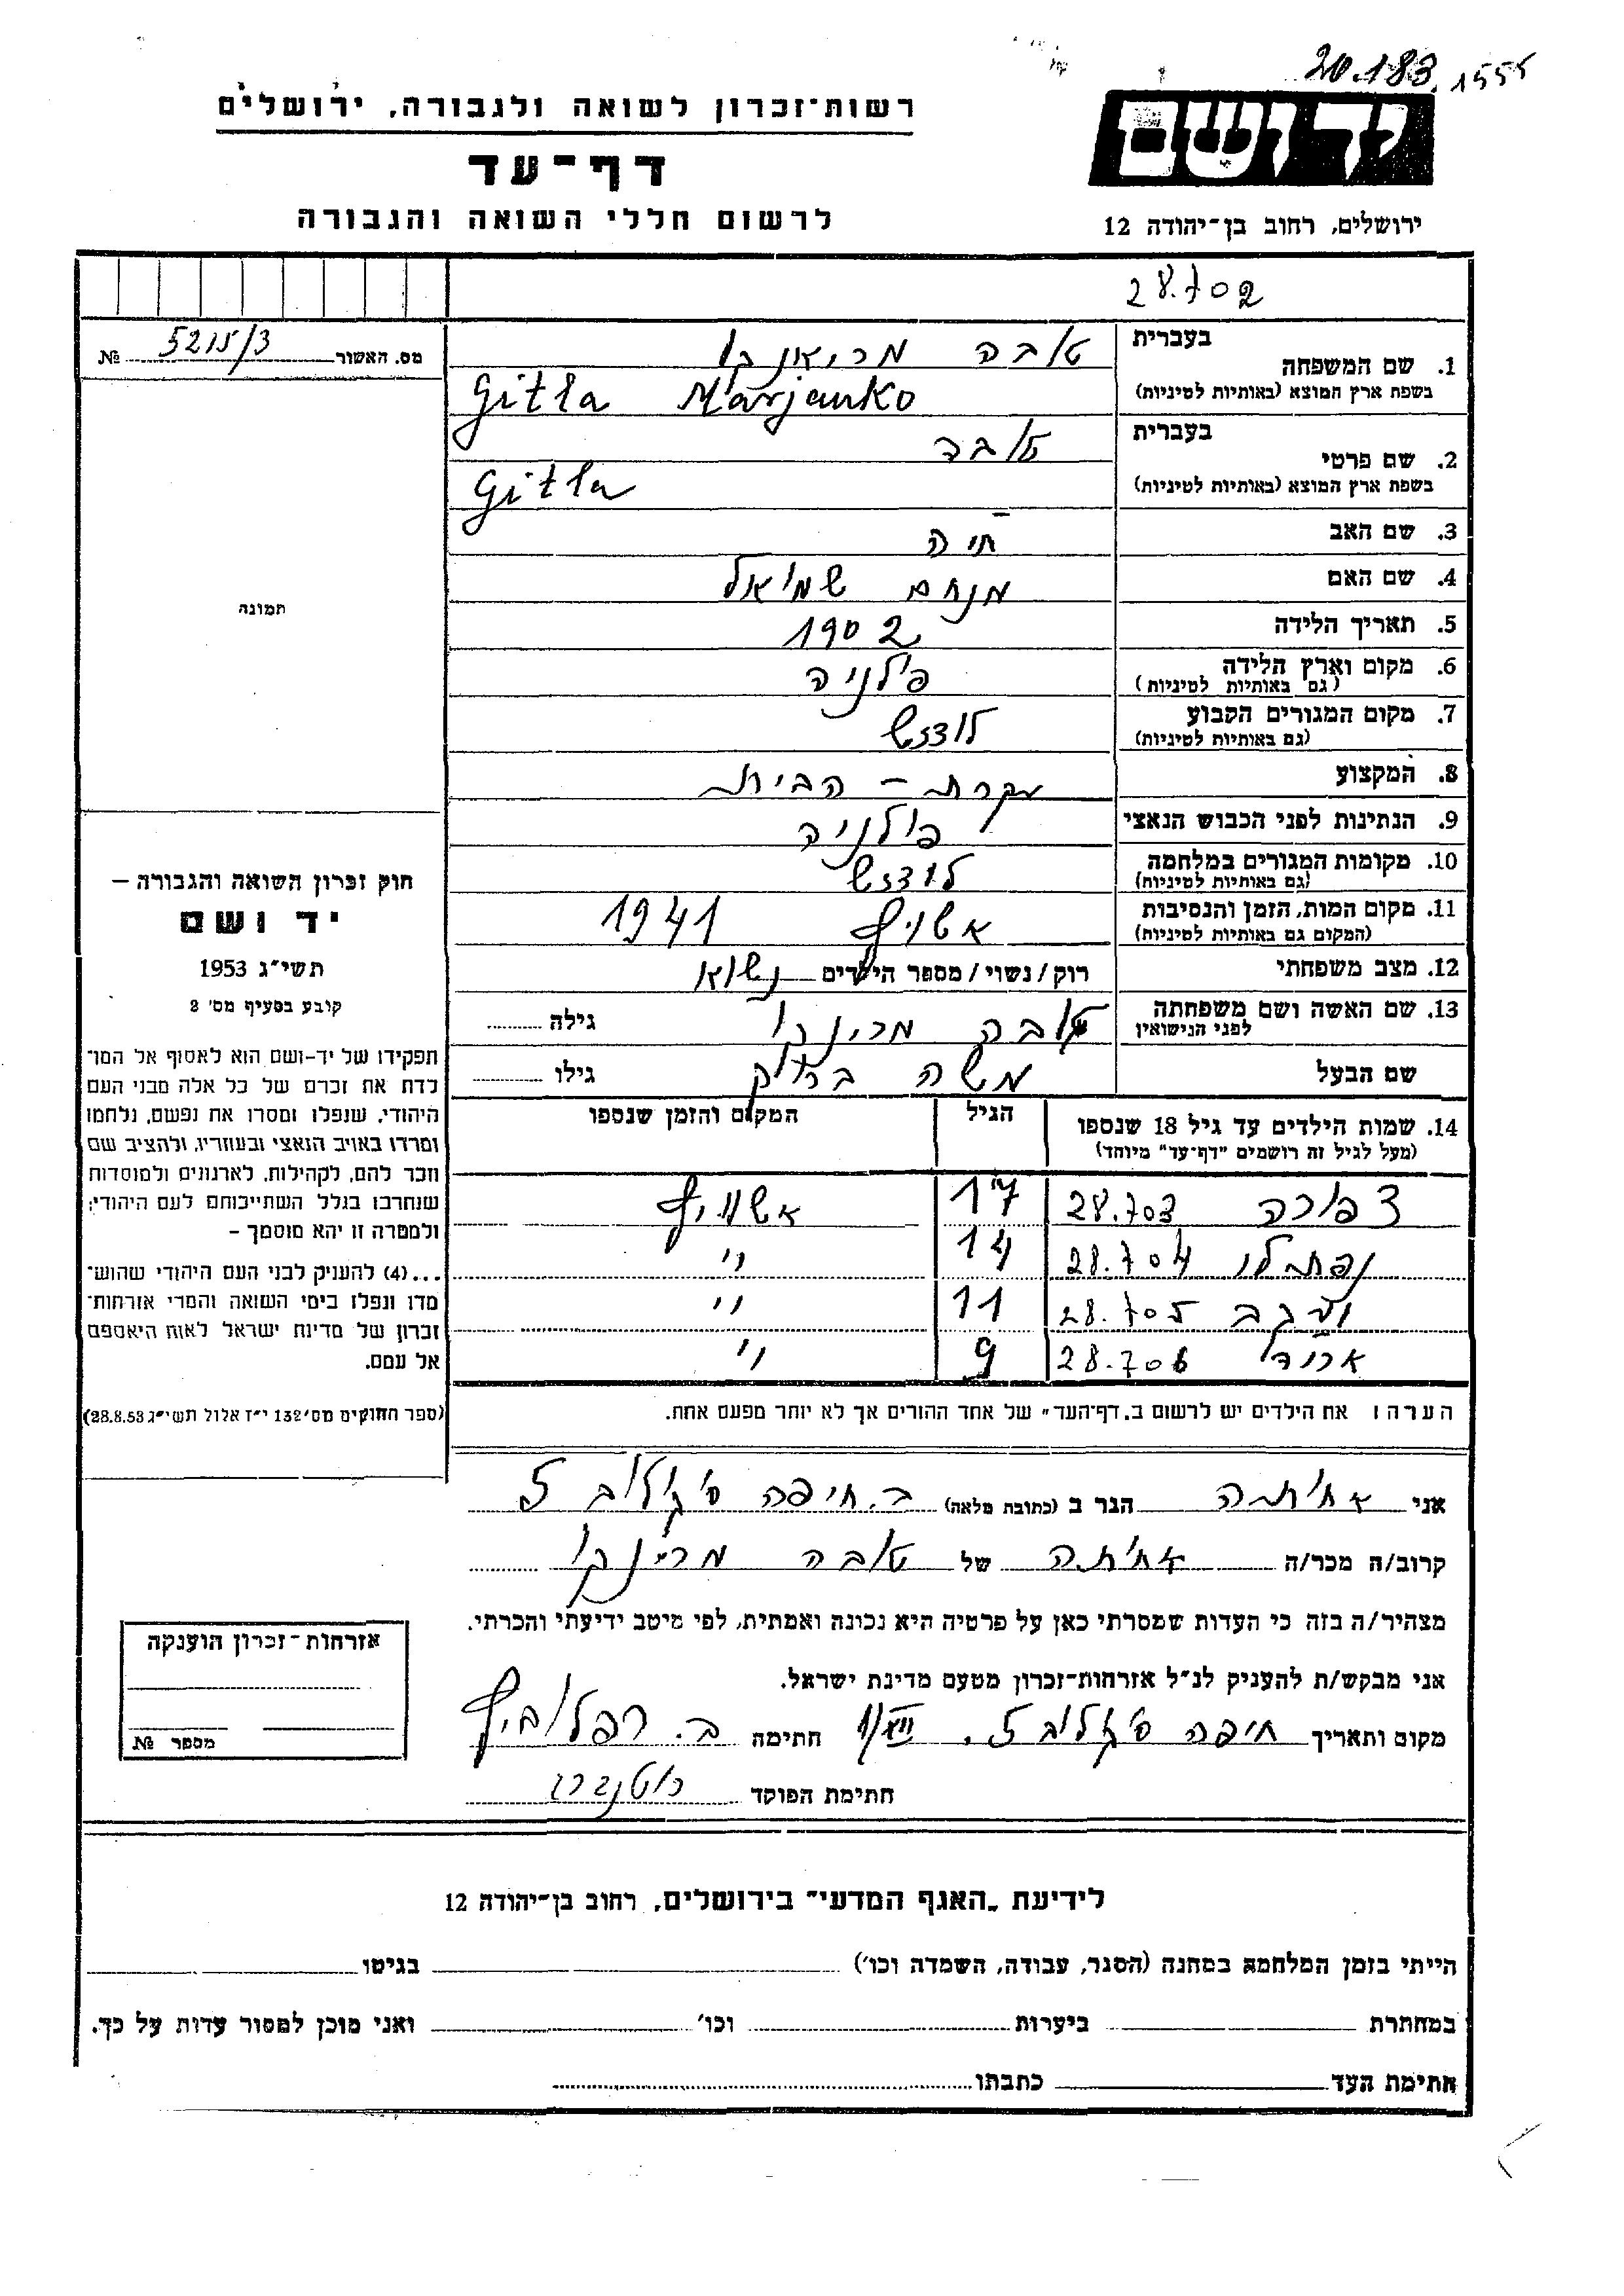 20.183. 1555
רשות־זכרון לשואה ולגבורה, ירושלים
דף־עד
לרשום חללי השואה והגבורה
יד ושם
ירושלים, רחוב בן־יהודה 12
28.702
מס. האשור 5215/3 №
1. שם המשפחה
בעברית טובה מריאנקו
בשפת ארץ המוצא (באותיות לטיניות) Gitla Marjanko
2. שם פרטי
בעברית טובה
בשפת ארץ המוצא (באותיות לטיניות) Gitla
3. שם האב חיה
4. שם האם מנחם שמואל
5. תאריך הלידה 1902
6. מקום וארץ הלידה פולניה
(גם באותיות לטיניות)
7. מקום המגורים הקבוע לודזש
(גם באותיות לטיניות)
8. המקצוע עקרת - הבית
9. הנתינות לפני הכבוש הנאצי פולניה
10. מקומות המגורים במלחמה לודזש
(גם באותיות לטיניות)
11. מקום המות, הזמן והנסיבות אשויץ 1941
(המקום גם באותיות לטיניות)
12. מצב משפחתי רוק/נשוי/מספר הילדים נשוא
13. שם האשה ושם משפחתה טובה מרינקו גילה
לפני הנישואין
שם הבעל משה גילו
14. שמות הילדים עד גיל 18 שנספו הגיל המקום והזמן שנספו
(מעל לגיל זה רושמים "דף־עד" מיוחד)
צפורה 28.703 17 אשוויץ
28.704 14 "
28.705 11 "
28.706 9 "
הערה: את הילדים יש לרשום ב„דף־העד" של אחד ההורים אך לא יותר מפעם אחת.
תמונה
חוק זכרון השואה והגבורה —
יד ושם
תשי״ג 1953
קובע בסעיף מס׳ 2
תפקידו של יד-ושם הוא לאסוף אל המו־
לדת את זכרם של כל אלה מבני העם
היהודי, שנפלו ומסרו את נפשם, נלחמו
ומרדו באויב הנאצי ובעוזריו, ולהציב שם
וזכר להם, לקהילות, לארגונים ולמוסדות
שנחרבו בגלל השתייכותם לעם היהודי;
ולמטרה זו יהא מוסמך —
...(4) להעניק לבני העם היהודי שהוש־
מדו ונפלו בימי השואה והמרי אזרחות־
זכרון של מדינת ישראל לאות היאספם
אל עמם.
(ספר החוקים מס׳ 132 י״ז אלול תשי״ג 28.8.53)
אני אחותה הגר ב (כתובת מלאה) ב. חיפה 5
קרוב/ה מכר/ה אחותה של טובה מרינקו
מצהיר/ה בזה כי העדות שמסרתי כאן על פרטיה היא נכונה ואמתית, לפי מיטב ידיעתי והכרתי.
אני מבקש/ת להעניק לנ״ל אזרחות־זכרון מטעם מדינת ישראל.
מקום ותאריך חיפה 5. חתימה ב. רפלוביץ
חתימת הפוקד
אזרחות־זכרון הוענקה
מספר №
לידיעת „האגף המדעי" בירושלים, רחוב בן־יהודה 12
הייתי בזמן המלחמא במחנה (הסגר, עבודה, השמדה וכו׳) בגיטו
במחתרת ביערות וכו׳ ואני מוכן למסור עדות על כך.
חתימת העד כתבתו